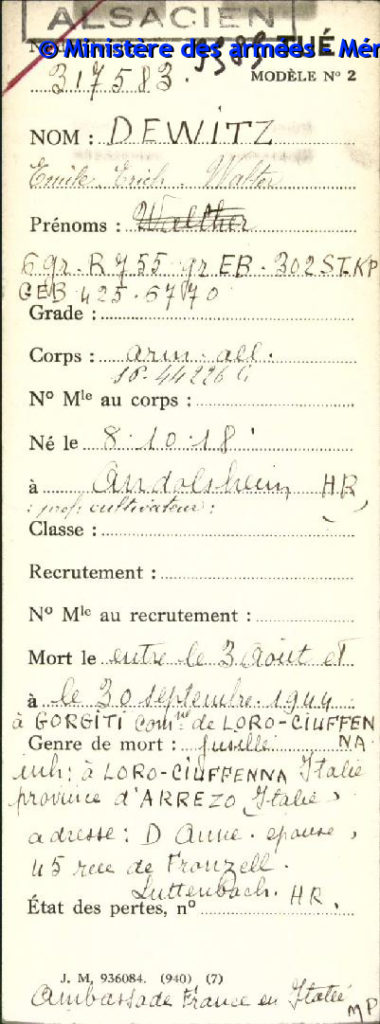 ALSACIEN
© Ministère des armées - Mém
TUÉ
317583. 9389
MODÈLE N° 2
NOM : DEWITZ
Emile. Erich. Walter
Prénoms : Walther
6 gr. R 755 gr EB. 302 ST. KP
GEB 425. 6770
Grade :
Corps : arm. all.
SP. 44226 C
N° Mle au corps :
Né le 8.10.18
à Andolsheim HR
: prof. cultivateur :
Classe :
Recrutement :
N° Mle au recrutement :
Mort le entre le 3 Août et
à le 30 septembre 1944
à GORGITI comne de LORO-CIUFFEN
Genre de mort : fusillé NA
inh: à LORO-CIUFFENNA Italie
province d'ARREZO Italie,
adresse: D Anne. épouse,
45 rue de Fronzell.
Luttenbach. HR.
État des pertes, n°
J. M. 936084. (940) (7)
Ambassade France en Italie
MP